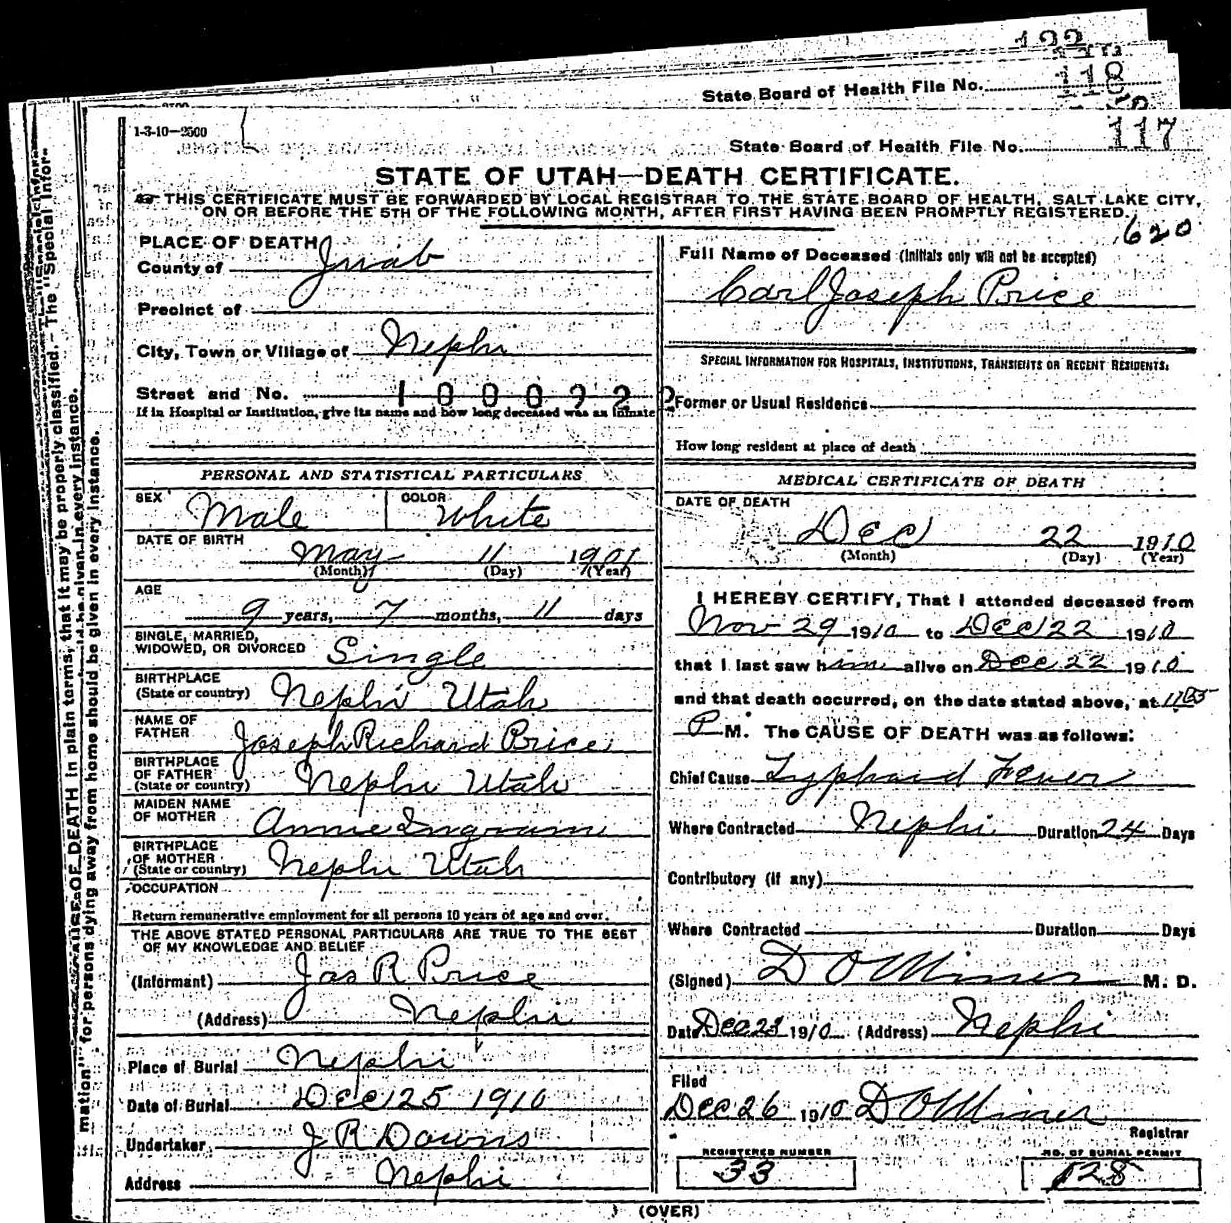 122
State Board of Health File No. 118
1-3-10—2500
State Board of Health File No. 117
STATE OF UTAH—DEATH CERTIFICATE.
THIS CERTIFICATE MUST BE FORWARDED BY LOCAL REGISTRAR TO THE STATE BOARD OF HEALTH, SALT LAKE CITY,
ON OR BEFORE THE 5TH OF THE FOLLOWING MONTH, AFTER FIRST HAVING BEEN PROMPTLY REGISTERED.
620
PLACE OF DEATH
County of Juab
Precinct of
City, Town or Village of Nephi
Street and No. 1000222
If in Hospital or Institution, give its name and how long deceased was an inmate
PERSONAL AND STATISTICAL PARTICULARS
SEX Male COLOR White
DATE OF BIRTH
May 11 1901
(Month) (Day) (Year)
AGE
9 years, 7 months, 11 days
SINGLE, MARRIED,
WIDOWED, OR DIVORCED Single
BIRTHPLACE
(State or country) Nephi Utah
NAME OF
FATHER Joseph Richard Price
BIRTHPLACE
OF FATHER
(State or country) Nephi Utah
MAIDEN NAME
OF MOTHER Annie Ingram
BIRTHPLACE
OF MOTHER
(State or country) Nephi Utah
OCCUPATION
Return remunerative employment for all persons 10 years of age and over.
THE ABOVE STATED PERSONAL PARTICULARS ARE TRUE TO THE BEST
OF MY KNOWLEDGE AND BELIEF
(Informant) Jos R Price
(Address) Nephi
Place of Burial Nephi
Date of Burial Dec 25 1910
Undertaker J R Downs
Address Nephi
Full Name of Deceased (Initials only will not be accepted)
Carl Joseph Price
SPECIAL INFORMATION FOR HOSPITALS, INSTITUTIONS, TRANSIENTS OR RECENT RESIDENTS.
Former or Usual Residence
How long resident at place of death
MEDICAL CERTIFICATE OF DEATH
DATE OF DEATH
Dec 22 1910
(Month) (Day) (Year)
I HEREBY CERTIFY, That I attended deceased from
Nov 29 1910 to Dec 22 1910
that I last saw him alive on Dec 22 1910
and that death occurred, on the date stated above, at 1105
P M. The CAUSE OF DEATH was as follows:
Chief Cause Typhoid Fever
Where Contracted Nephi Duration 24 Days
Contributory (if any)
Where Contracted Duration Days
(Signed) D O Miner M. D.
Date Dec 23 1910 (Address) Nephi
Filed
Dec 26 1910 D O Miner
Registrar
REGISTERED NUMBER
33
NO. OF BURIAL PERMIT
128
(OVER)
CAUSE OF DEATH in plain terms, that it may be properly classified. The "Special Infor-
mation" for persons dying away from home should be given in every instance.